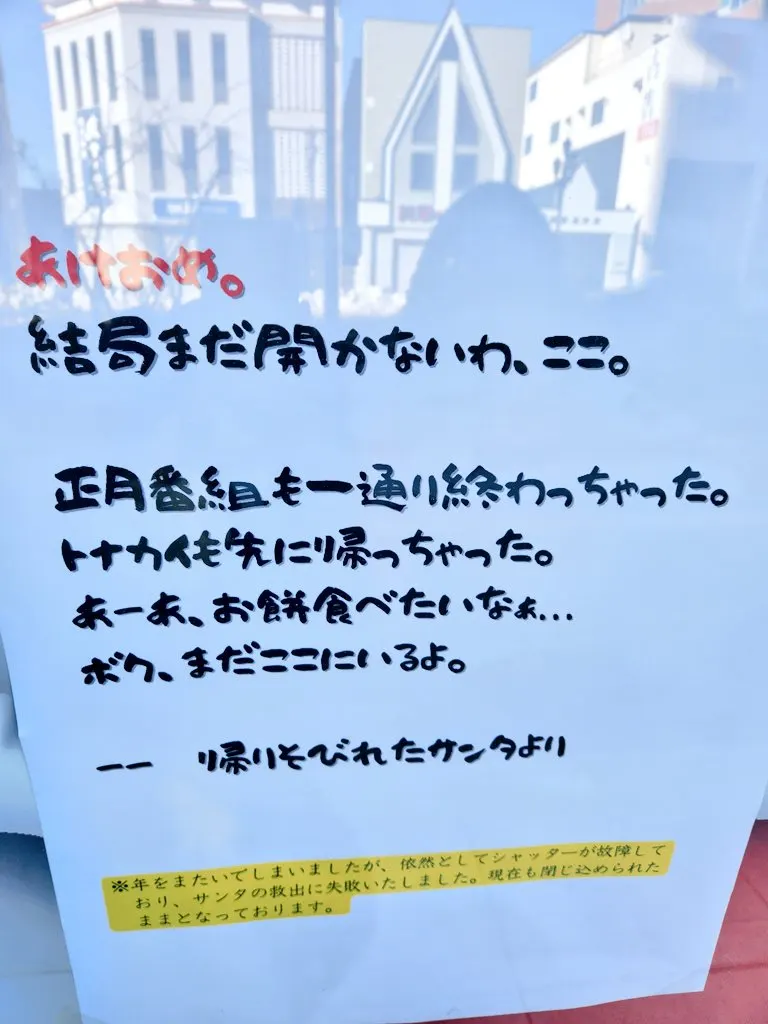 あけおめ。
結局まだ開かないわ、ここ。
正月番組も一通り終わっちゃった。
トナカイも先に帰っちゃった。
あーあ、お餅食べたいなぁ...
ボク、まだここにいるよ。
―― 帰りそびれたサンタより
※年をまたいでしまいましたが、依然としてシャッターが故障して
おり、サンタの救出に失敗いたしました。現在も閉じ込められた
ままとなっております。